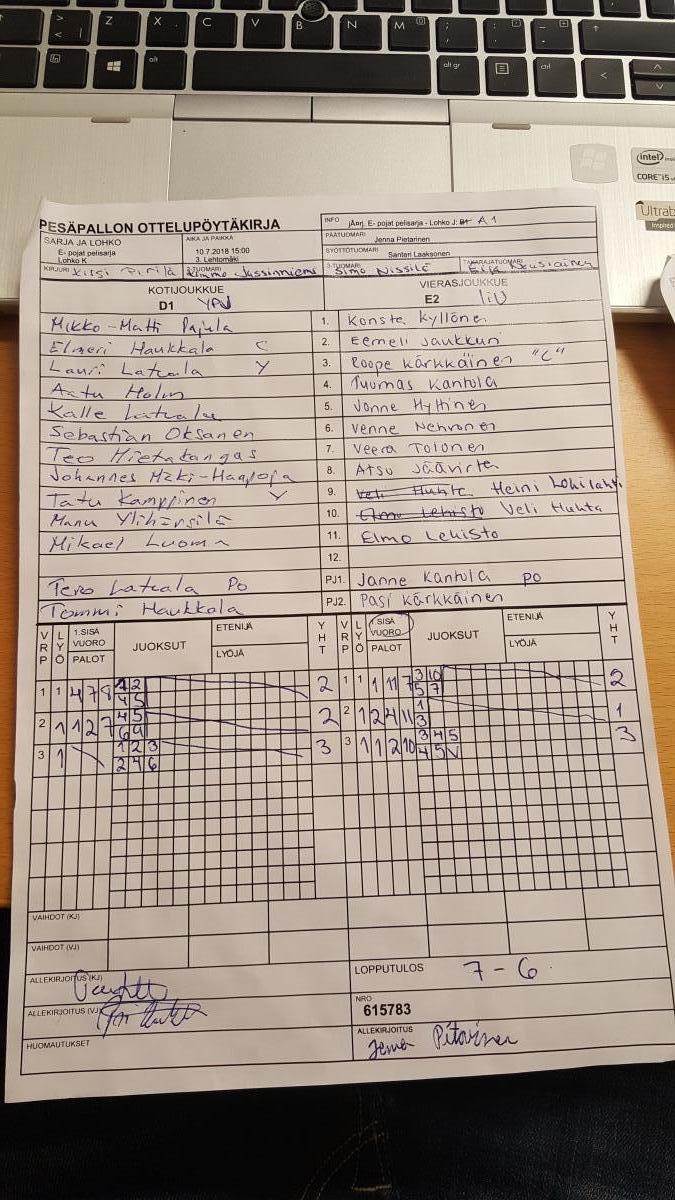 Z X C V B N M
alt
alt gr
ctrl
intel
CORE i5
Ultrab
Inspired
PESÄPALLON OTTELUPÖYTÄKIRJA
INFO
E- pojat pelisarja - Lohko J: A1
SARJA JA LOHKO
E- pojat pelisarja
Lohko K
AIKA JA PAIKKA
10.7.2018 15:00
3. Lehtomäki
PÄÄTUOMARI
Jenna Pietarinen
SYÖTTÖTUOMARI
Santeri Laaksonen
KIRJURI Kirsi Pirilä
2-TUOMARI Kimmo Jussinniemi
3-TUOMARI Simo Nissilä
TAKARAJATUOMARI
KOTIJOUKKUE
D1 YPJ
VIERASJOUKKUE
E2
Mikko-Matti Pajula
1. Konsta Kyllöne
Elmeri Haukkala C
2. Eemeli Jaukkuri
Lauri Latvala Y
3. Roope Kärkkäinen "C"
Aatu Holm
4. Tuomas Kantola
Kalle Latvala
5. Jonne Hyttinen
Sebastian Oksanen
6. Venne Nehvonen
Teo Hietakangas
7. Veera Tolonen
Johannes Mäki-Haapoja
8. Atsu Jäävirta
Tatu Kamppinen Y
9. Veli Huhta Heini Lohilahti
Manu Ylihärsilä
10. Elmo Lehisto Veli Huhta
Mikael Luoma
11. Elmo Lehisto
12.
Tero Latvala PO
PJ1. Janne Kantola PO
Tommi Haukkala
PJ2. Pasi Kärkkäinen
VRP LYÖ 1.SISÄ VUORO PALOT JUOKSUT ETENIJÄ LYÖJÄ YHT
VRP LYÖ 1.SISÄ VUORO PALOT JUOKSUT ETENIJÄ LYÖJÄ YHT
1 1 4 7 8 2
4 5
1 1 1 11 7 3 10 2
5 7
2 1 1 2 7 4 5 2
6 9
2 1 2 4 11 1 1
3
3 1 1 2 3 3
2 4 6
3 1 1 2 10 3 4 5 3
4 5 V
VAIHDOT (KJ)
VAIHDOT (VJ)
ALLEKIRJOITUS (KJ)
LOPPUTULOS 7 - 6
ALLEKIRJOITUS (VJ)
NRO
615783
HUOMAUTUKSET
ALLEKIRJOITUS